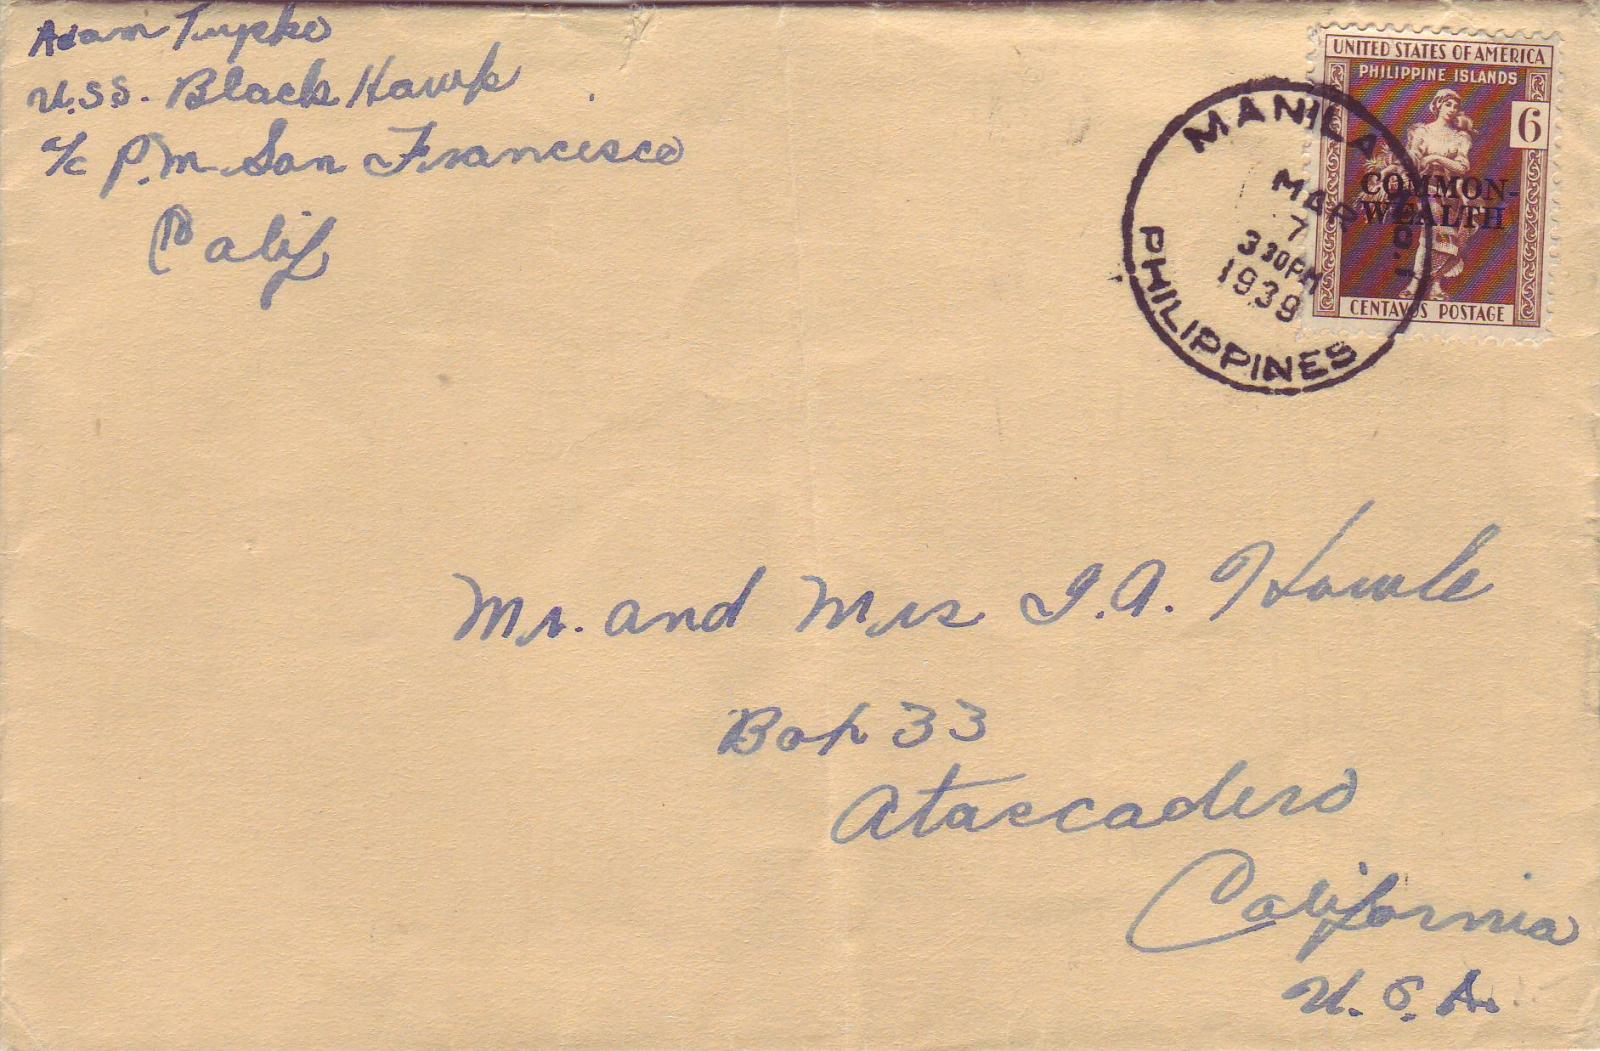 Adam Tupko
U.S.S. Black Hawk
℅ P.M. San Francisco
Calif
UNITED STATES OF AMERICA
PHILIPPINE ISLANDS
6
COMMON-
WEALTH
CENTAVOS POSTAGE
MANILA
MAR
7
3 30PM
1939
PHILIPPINES
Mr. and Mrs I.A. Hawle
Box 33
Atascadero
California
U.S.A.